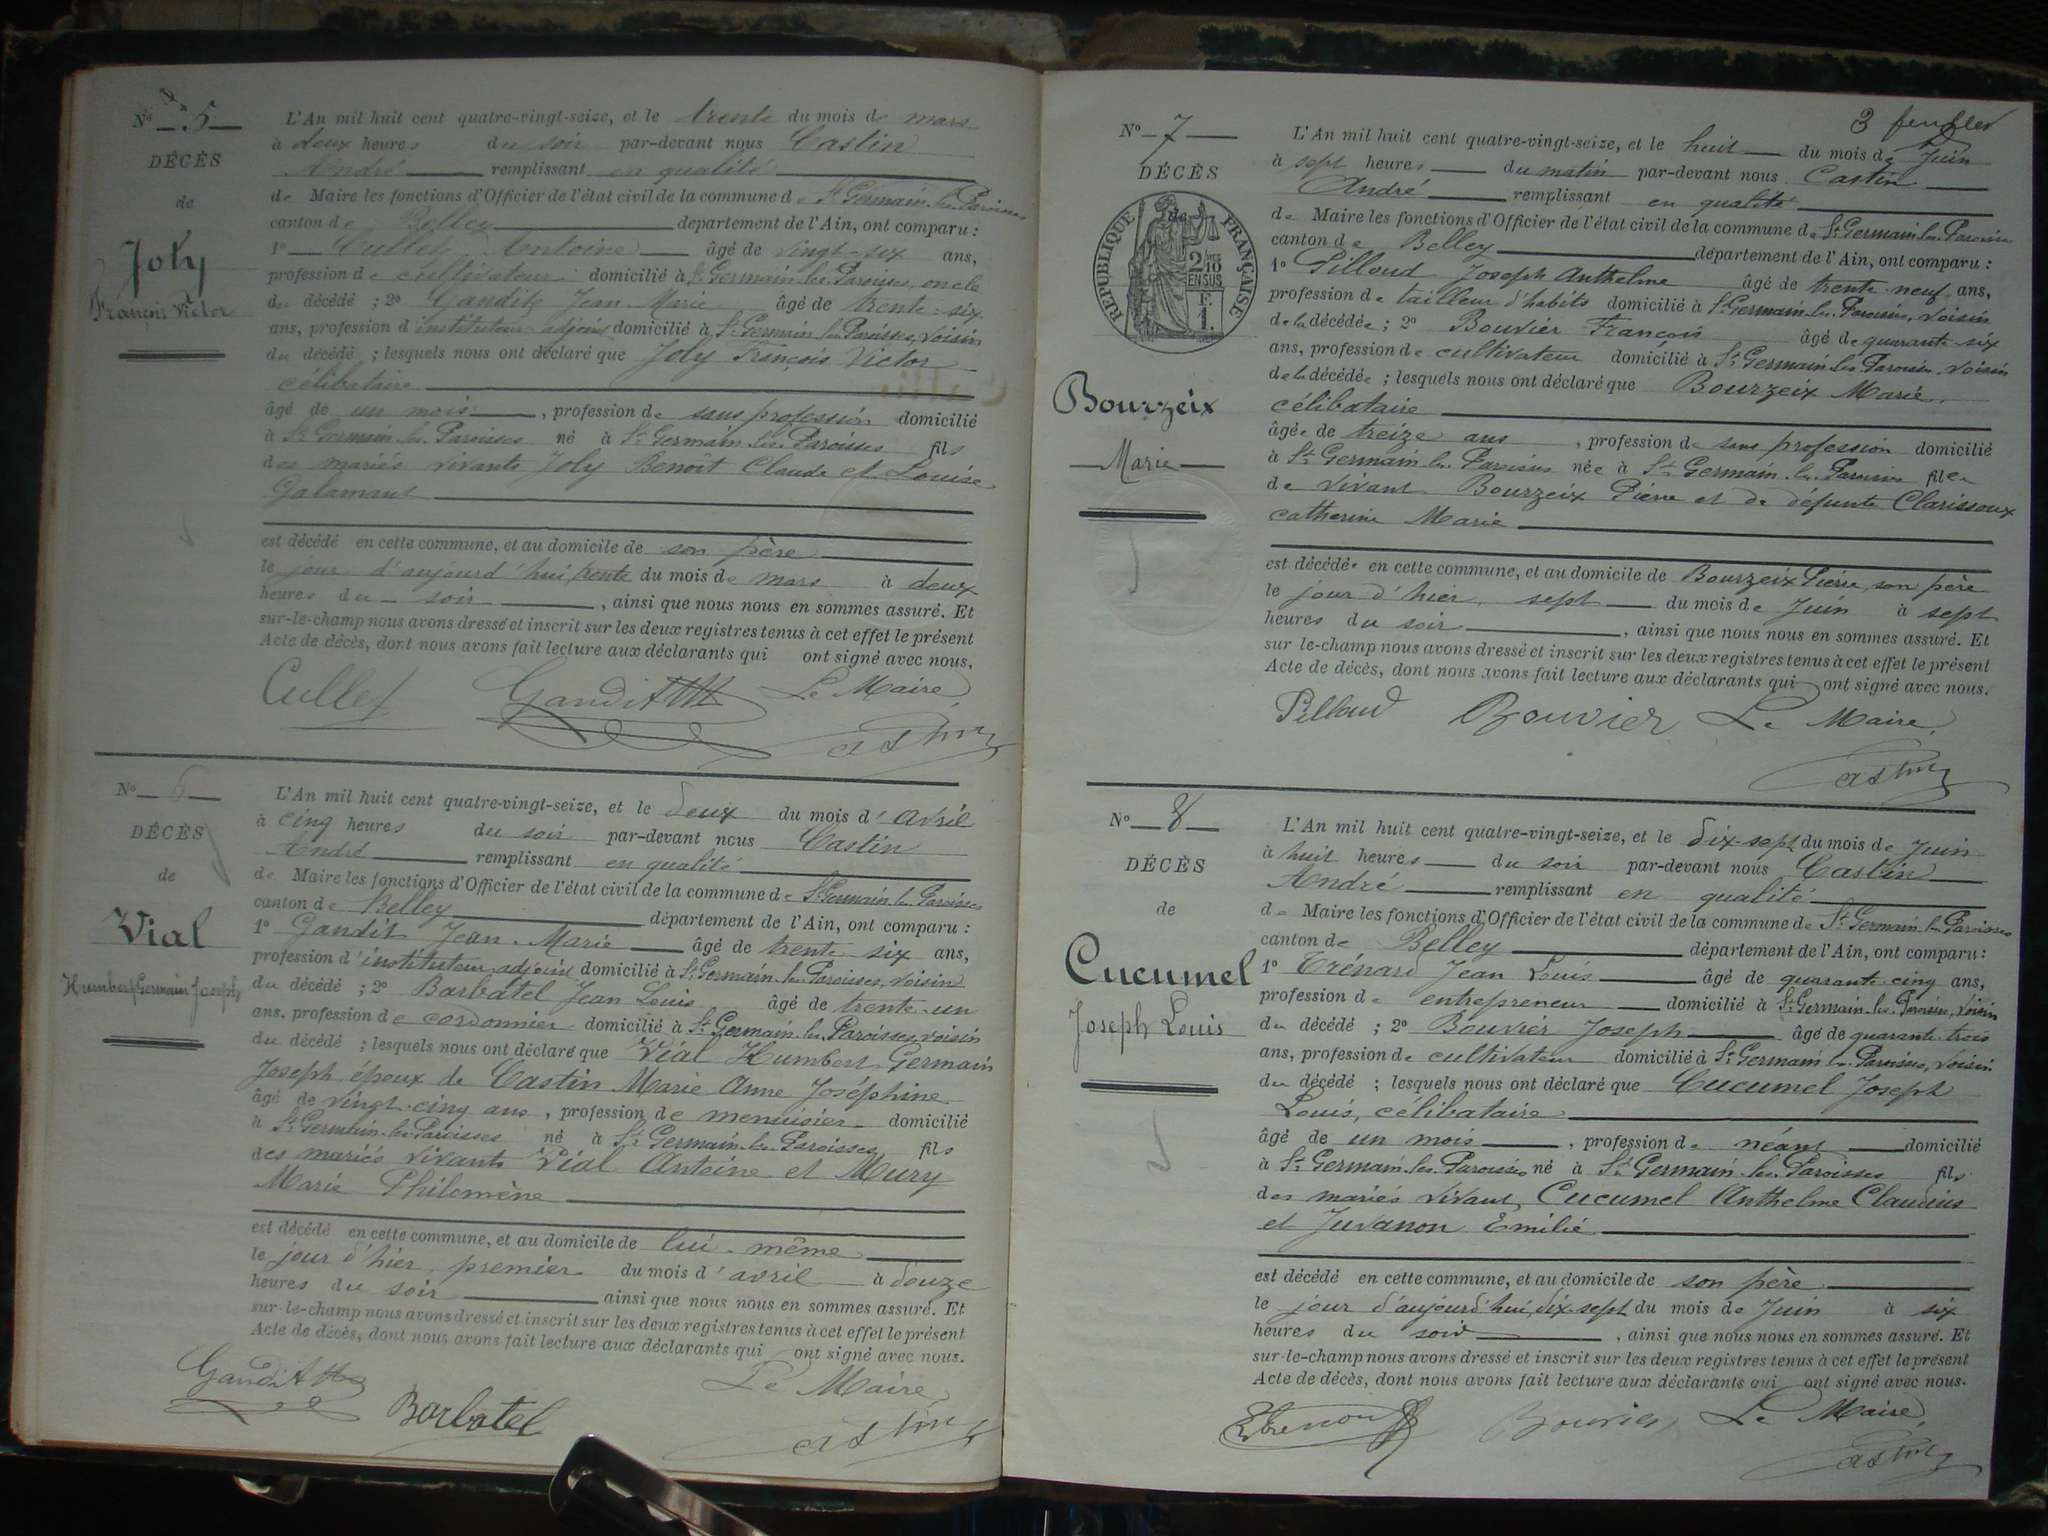 No 5
DÉCÈS
de
Joly
François Victor
L'An mil huit cent quatre-vingt-seize, et le trente du mois de mars
à deux heures du soir par-devant nous Castin
André remplissant en qualité
de Maire les fonctions d'Officier de l'état civil de la commune de St Germain-les-Paroisses
canton de Belley département de l'Ain, ont comparu :
1o Cullet Antoine âgé de vingt-six ans,
profession de cultivateur domicilié à St Germain-les-Paroisses, oncle
du décédé ; 2o Gandit Jean Marie âgé de trente-six
ans, profession d'instituteur adjoint domicilié à St Germain-les-Paroisses, voisin
du décédé ; lesquels nous ont déclaré que Joly François Victor
célibataire
âgé de un mois , profession de sans profession domicilié
à St Germain-les-Paroisses né à St Germain-les-Paroisses fils
des mariés vivants Joly Benoît Claude et Louise
Galamant
est décédé en cette commune, et au domicile de son père
le jour d'aujourd'hui, trente du mois de mars à deux
heures du soir , ainsi que nous nous en sommes assuré. Et
sur-le-champ nous avons dressé et inscrit sur les deux registres tenus à cet effet le présent
Acte de décès, dont nous avons fait lecture aux déclarants qui ont signé avec nous,
Cullet Gandit Le Maire
Castin
No 6
DÉCÈS
de
Vial
Humbert Germain Joseph
L'An mil huit cent quatre-vingt-seize, et le deux du mois d'avril
à cinq heures du soir par-devant nous Castin
André remplissant en qualité
de Maire les fonctions d'Officier de l'état civil de la commune de St Germain-les-Paroisses
canton de Belley département de l'Ain, ont comparu :
1o Gandit Jean-Marie âgé de trente six ans,
profession d'instituteur adjoint domicilié à St Germain-les-Paroisses, voisin
du décédé ; 2o Barbatel Jean Louis âgé de trente-un
ans, profession de cordonnier domicilié à St Germain-les-Paroisses, voisin
du décédé ; lesquels nous ont déclaré que Vial Humbert Germain
Joseph, époux de Castin Marie Anne Joséphine
âgé de vingt-cinq ans , profession de menuisier domicilié
à St Germain-les-Paroisses né à St Germain-les-Paroisses fils
des mariés vivants Vial Antoine et Mury
Marie Philomène
est décédé en cette commune, et au domicile de lui-même
le jour d'hier, premier du mois d'avril à douze
heures du soir ainsi que nous nous en sommes assuré. Et
sur-le-champ nous avons dressé et inscrit sur les deux registres tenus à cet effet le présent
Acte de décès, dont nous avons fait lecture aux déclarants qui ont signé avec nous.
Gandit Barbatel Le Maire
Castin
3 feuillet
No 7
DÉCÈS
de
RÉPUBLIQUE FRANÇAISE
2/10 EN SUS
F. 1.
Bourzeix
Marie
L'An mil huit cent quatre-vingt-seize, et le huit du mois de Juin
à sept heures du matin par-devant nous Castin
André remplissant en qualité
de Maire les fonctions d'Officier de l'état civil de la commune de St Germain-les-Paroisses
canton de Belley département de l'Ain, ont comparu :
1o Pilloud Joseph Anthelme âgé de trente-neuf ans,
profession de tailleur d'habits domicilié à St Germain-les-Paroisses, voisin
de la décédée ; 2o Bouvier François âgé de quarante-six
ans, profession de cultivateur domicilié à St Germain-les-Paroisses, voisin
de la décédée ; lesquels nous ont déclaré que Bourzeix Marie,
célibataire
âgée de treize ans , profession de sans profession domicilié
à St Germain-les-Paroisses née à St Germain-les-Paroisses fille
de vivant Bourzeix Pierre et de défunte Clarissoux
catherine Marie
est décédée en cette commune, et au domicile de Bourzeix Pierre, son père
le jour d'hier, sept du mois de Juin à sept
heures du soir , ainsi que nous nous en sommes assuré. Et
sur-le-champ nous avons dressé et inscrit sur les deux registres tenus à cet effet le présent
Acte de décès, dont nous avons fait lecture aux déclarants qui ont signé avec nous.
Pilloud Bouvier Le Maire,
Castin
No 8
DÉCÈS
de
Cucumel
Joseph Louis
L'An mil huit cent quatre-vingt-seize, et le dix-sept du mois de Juin
à huit heures du soir par-devant nous Castin
André remplissant en qualité
de Maire les fonctions d'Officier de l'état civil de la commune de St Germain-les-Paroisses
canton de Belley département de l'Ain, ont comparu :
1o Trénard Jean Louis âgé de quarante-cinq ans,
profession de entrepreneur domicilié à St Germain-les-Paroisses, voisin
du décédé ; 2o Bouvier Joseph âgé de quarante-trois
ans, profession de cultivateur domicilié à St Germain-les-Paroisses, voisin
du décédé ; lesquels nous ont déclaré que Cucumel Joseph
Louis, célibataire
âgé de un mois , profession de néant domicilié
à St Germain-les-Paroisses né à St Germain-les-Paroisses fils
des mariés vivant, Cucumel Anthelme Claudius
et Juvanon Emilie
est décédé en cette commune, et au domicile de son père
le jour d'aujourd'hui, dix-sept du mois de Juin à six
heures du soir , ainsi que nous nous en sommes assuré. Et
sur-le-champ nous avons dressé et inscrit sur les deux registres tenus à cet effet le présent
Acte de décès, dont nous avons fait lecture aux déclarants qui ont signé avec nous.
Bouvier Le Maire,
Castin